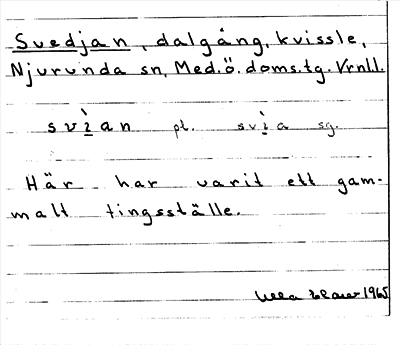 Svedjan, dalgång, kvissle,
Njurunda sn, Med.ö. doms.tg. Vrnl.
svìan pl. svìa sg.
Här har varit ett gam-
malt tingsställe.
Ulla 1965